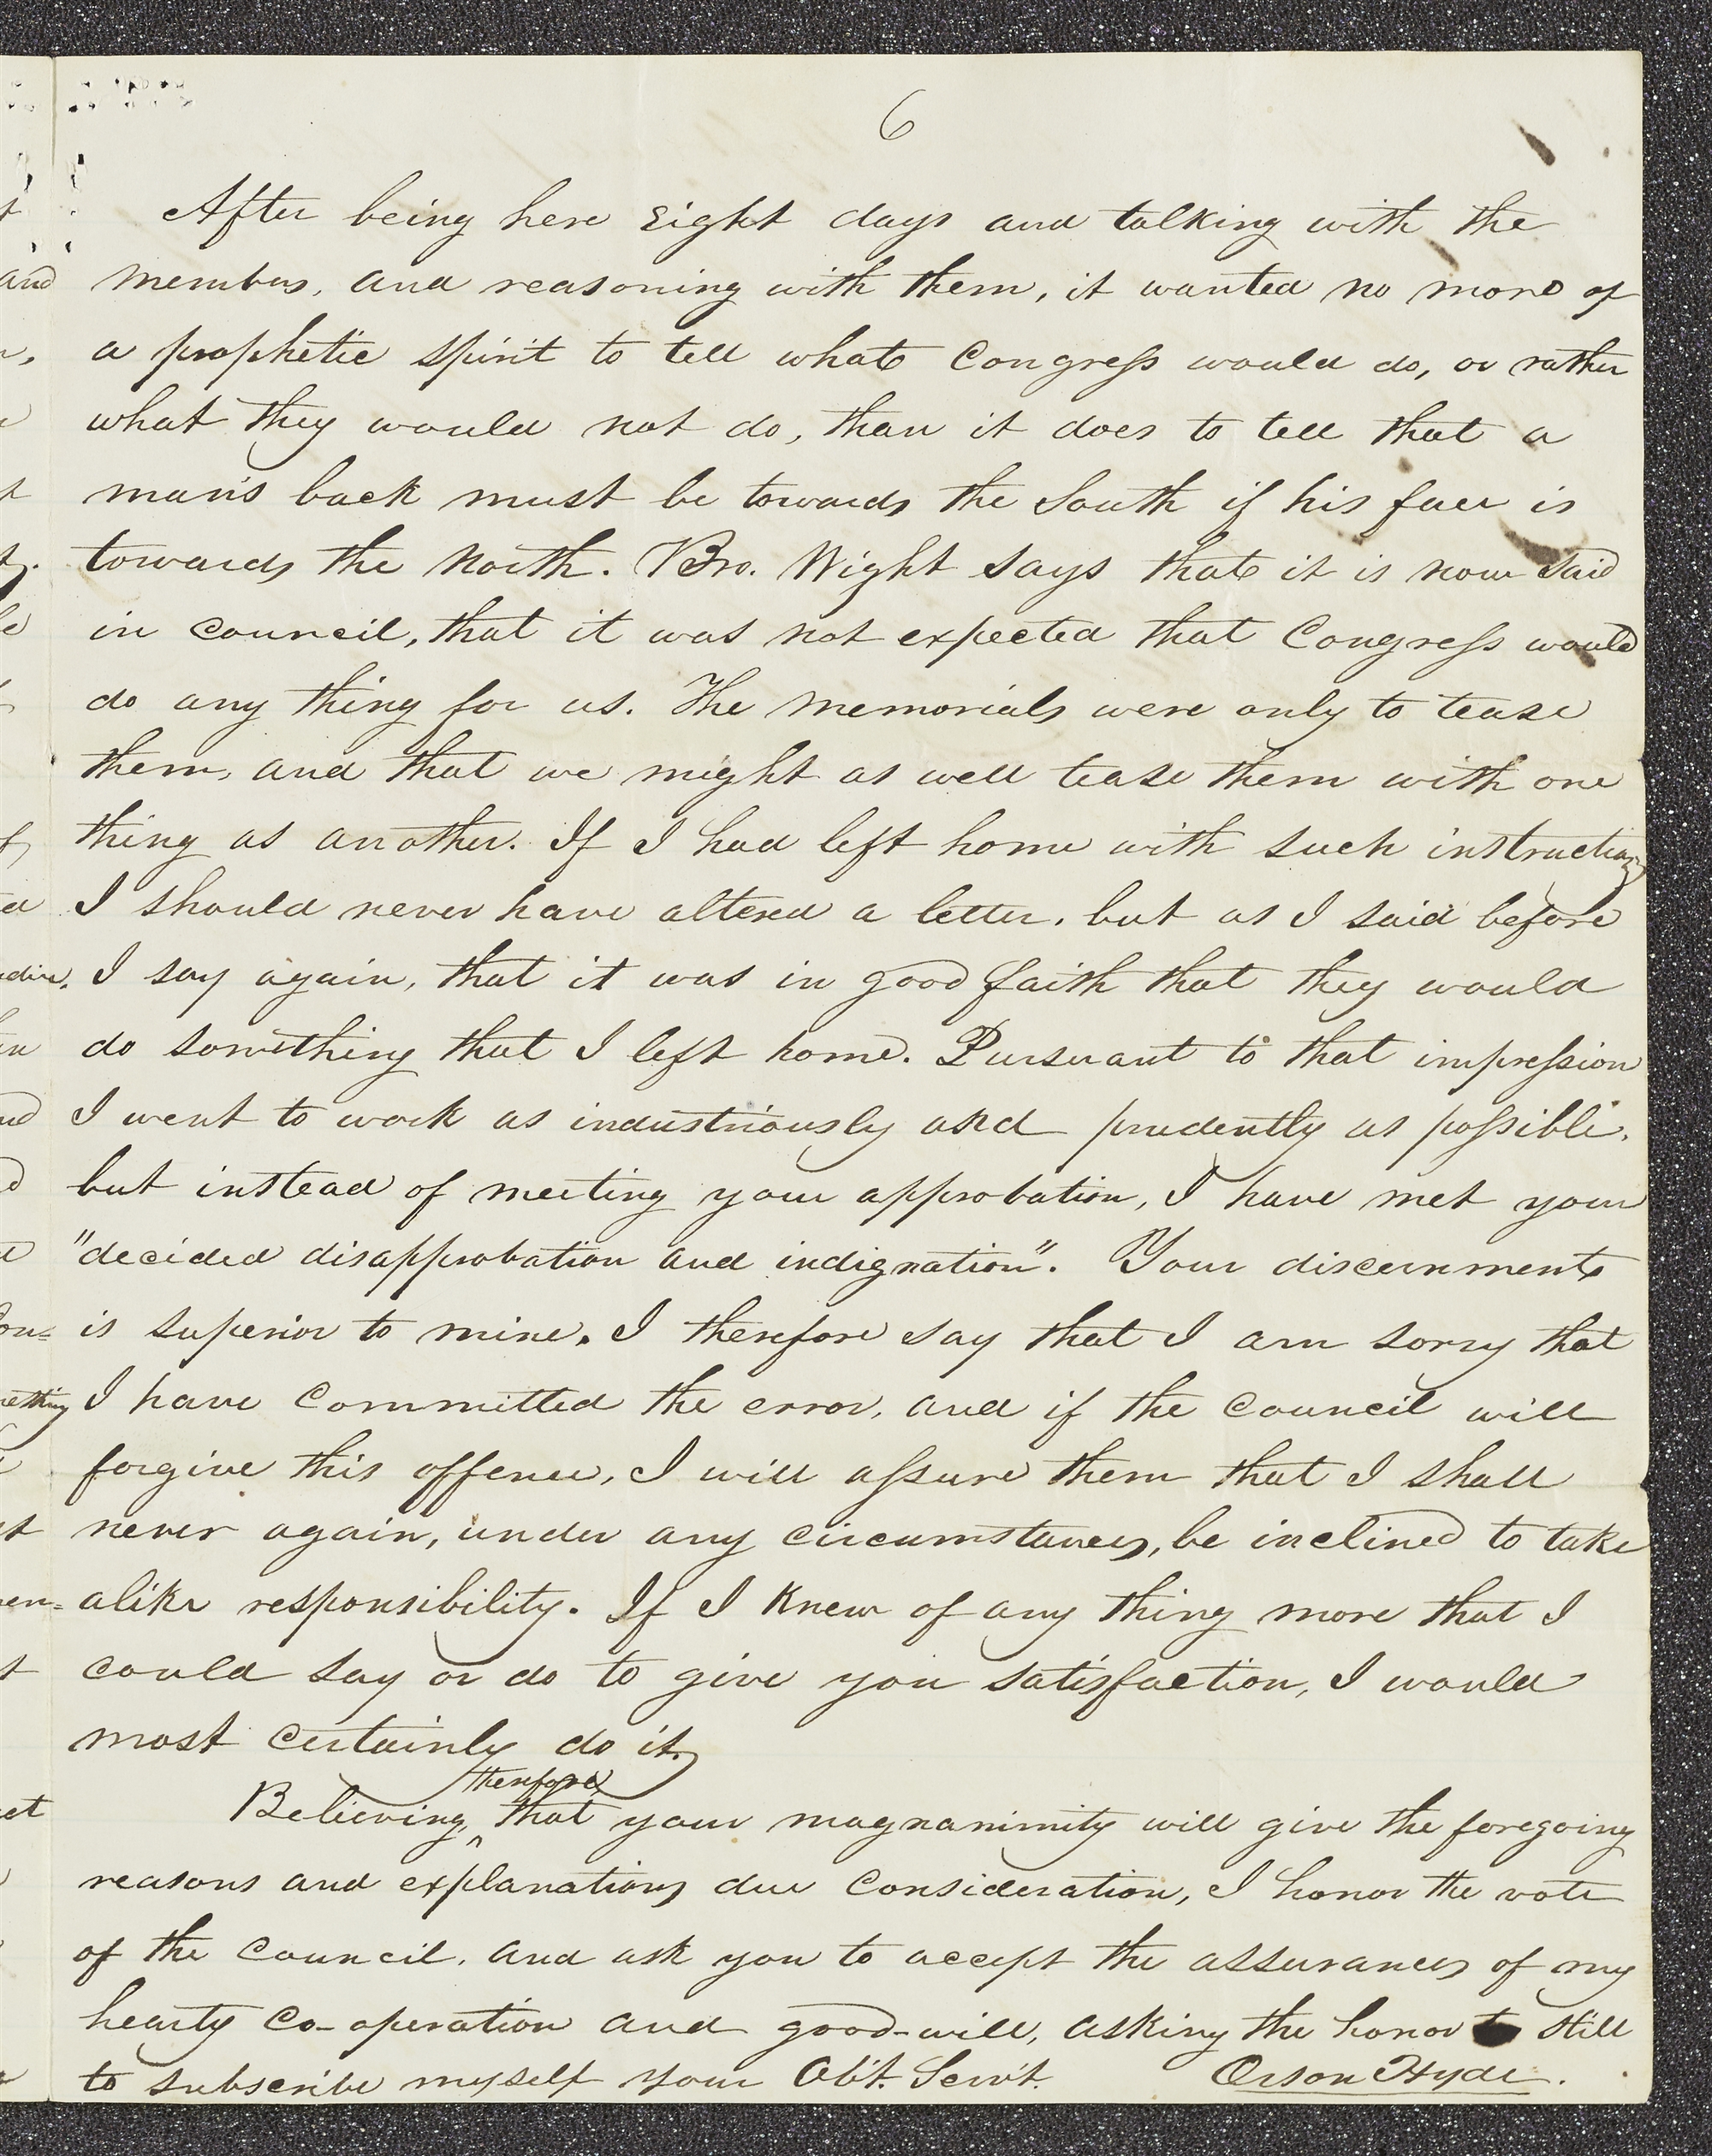 6
After being here eight days and talking with the
members, and reasoning with them, it wanted no more of
a prophetic spirit to tell what Congress would do, or rather
what they would not do, than it does to tell that a
man's back must be towards the South if his face is
towards the North. Bro. Wight says that it is now said
in council, that it was not expected that Congress would
do any thing for us. The memorials were only to tease
them, and that we might as well tease them with one
thing as another. If I had left home with such instructions
I should never have altered a letter, but as I said before
I say again, that it was in good faith that they would
do something that I left home. Pursuant to that impression
I went to work as industriously and prudently as possible,
but instead of meeting your approbation, I have met your
"decided disapprobation and indignation". Your discernment
is superior to mine. I therefore say that I am sorry that
I have committed the error, and if the council will
forgive this offence, I will assure them that I shall
never again, under any circumstances, be inclined to take
alike responsibility. If I knew of any thing more that I
could say or do to give you satisfaction, I would
most certainly do it.
therefore
Believing ^ that your magnanimity will give the foregoing
reasons and explanations due consideration, I honor the vote
of the council, and ask you to accept the assurances of my
hearty co-operation and good-will, asking the honor still
to subscribe myself your Obt. Servt. Orson Hyde.